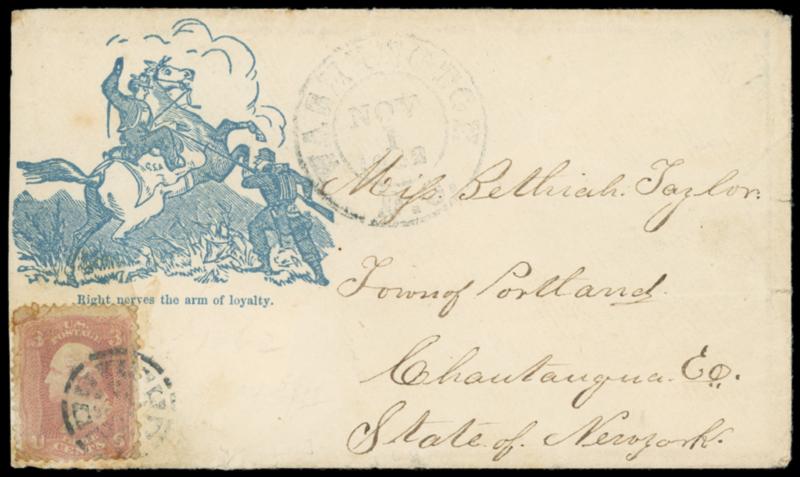 WASHINGTON
NOV
1
1862
D.C.
Miss Bethiah Taylor.
Town of Portland.
Chautauqua Co.
State of Newyork.
Right nerves the arm of loyalty.
3 3
POSTAGE
U S
CENTS